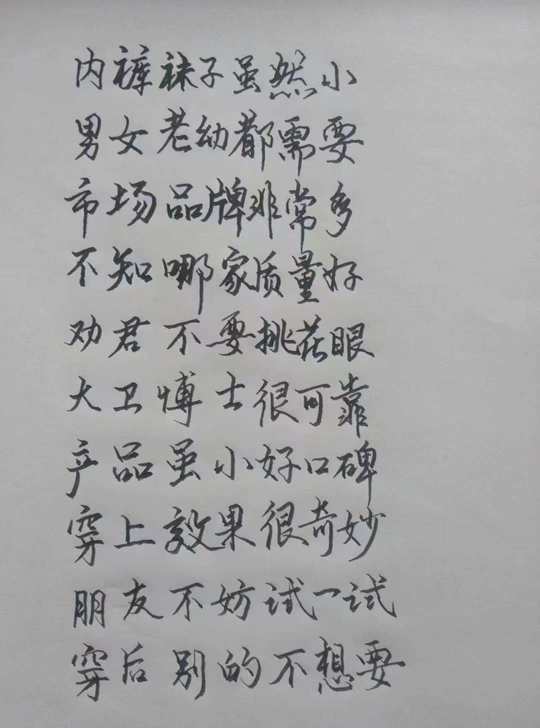 内裤袜子虽然小
男女老幼都需要
市场品牌非常多
不知哪家质量好
劝君不要挑花眼
大卫博士很可靠
产品虽小好口碑
穿上效果很奇妙
朋友不妨试一试
穿后别的不想要